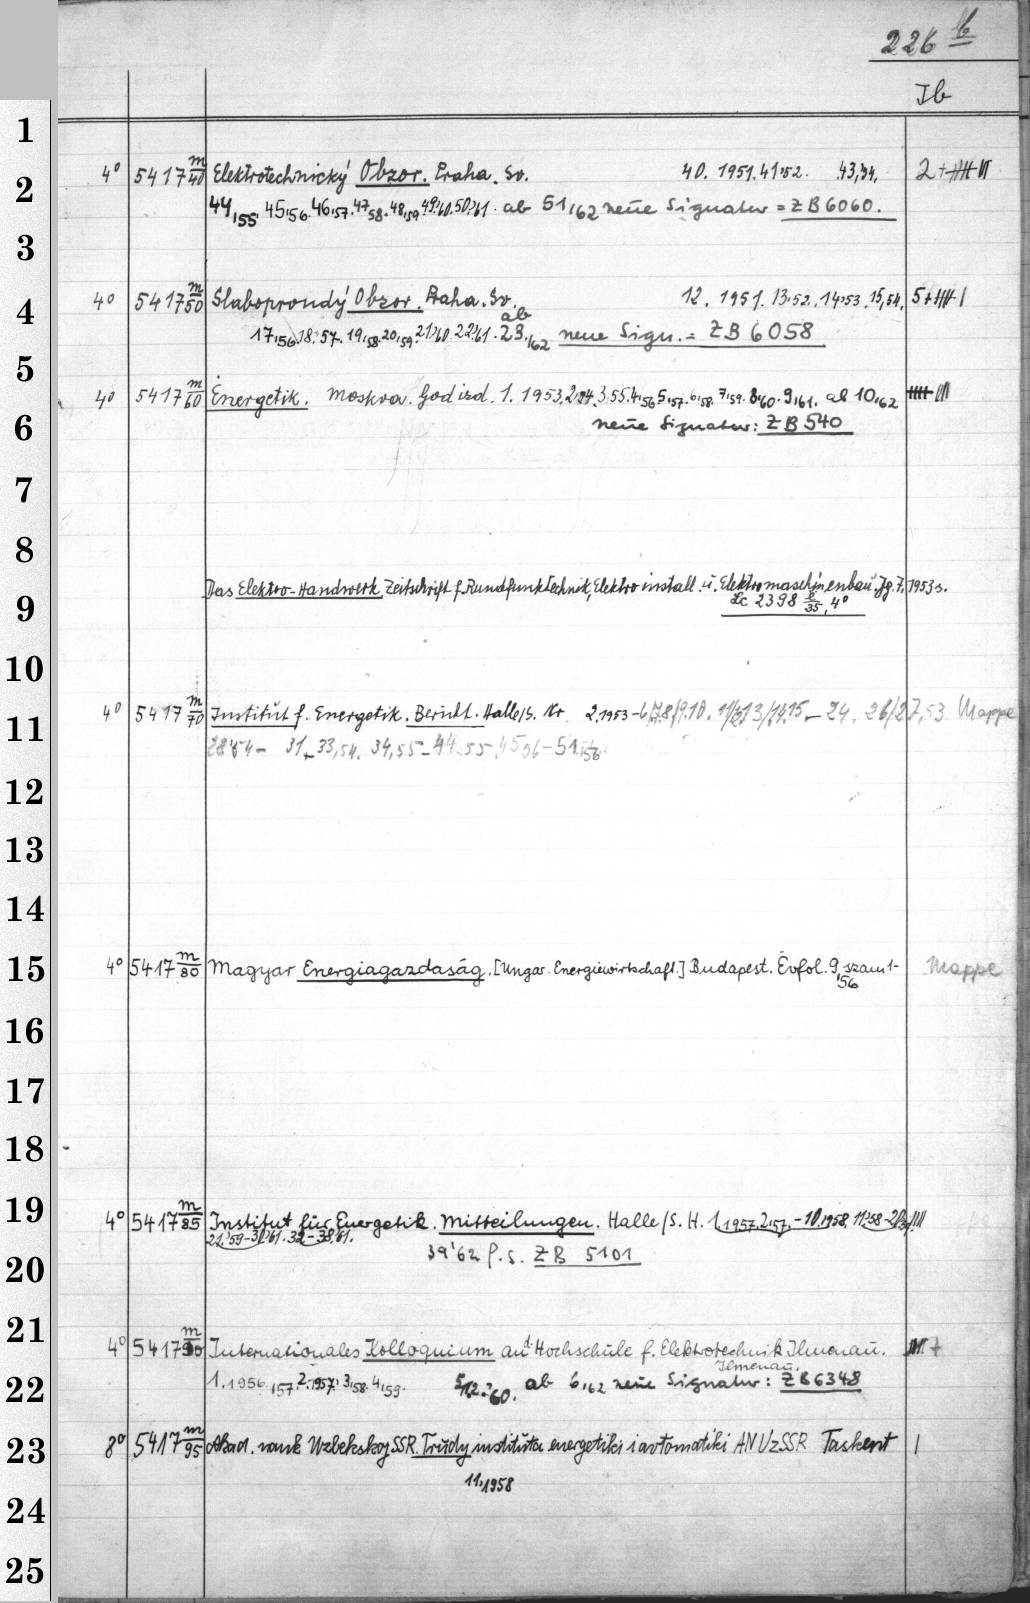 226 b
Ib
1
2
4° 5417 m/40 Elektrotechnický Obzor. Praha. Sv. 40. 1951. 41,52. 43,54. 2 +
44,55. 45,56. 46,57. 47,58. 48,59. 49,60. 50,61. ab 51,62 neue Signatur = ZB 6060.
3
4
4° 5417 m/50 Slaboproudý Obzor. Praha. Sv. 12. 1951. 13,52. 14,53. 15,54. 5 +
17,56. 18,57. 19,58. 20,59. 21,60. 22,61. ab 23,62 neue Sign. = ZB 6058
5
4° 5417 m/60 Energetik. Moskva. God izd. 1. 1953. 2,54. 3,55. 4,56 5,57. 6,58. 7,59. 8,60. 9,61. ab 10,62
6
neue Signatur: ZB 540
7
8
9
Das Elektro-Handwerk. Zeitschrift f. Rundfunktechnik, Elektroinstall. u. Elektromaschinenbau. Jg. 7, 1953 s.
Lc 2398 /35, 4°
10
11
4° 5417 m/70 Institut f. Energetik. Bericht. Halle/S. Nr. 2.1953 - 24. 26/27,53 Mappe
28,54 - 31 - 33,54. 34,55 - 44,55. 45,56 - 51,56
12
13
14
15
4° 5417 m/80 Magyar Energiagazdaság. [Ungar. Energiewirtschaft.] Budapest. Évfol. 9, szam 1- Mappe
56
16
17
18
19
4° 5417 m/85 Institut für Energetik. Mitteilungen. Halle/S. H. 1,1957. 2,57. - 10,1958. 11,58 -
21,59 - 31,61. 32 - 38,61.
20
39'62 f. s. ZB 5101
21
4° 5417 m/90 Internationales Kolloquium an d. Hochschule f. Elektrotechnik Ilmenau. 
Ilmenau.
22
1.1956,57. 2.1957. 3,58. 4,59. ab 6,62 neue Signatur: ZB 6348
23
8° 5417 m/95 Akad. nauk Uzbekskoj SSR. Trudy instituta energetiki i avtomatiki AN UzSSR Taskent 1
11,1958
24
25